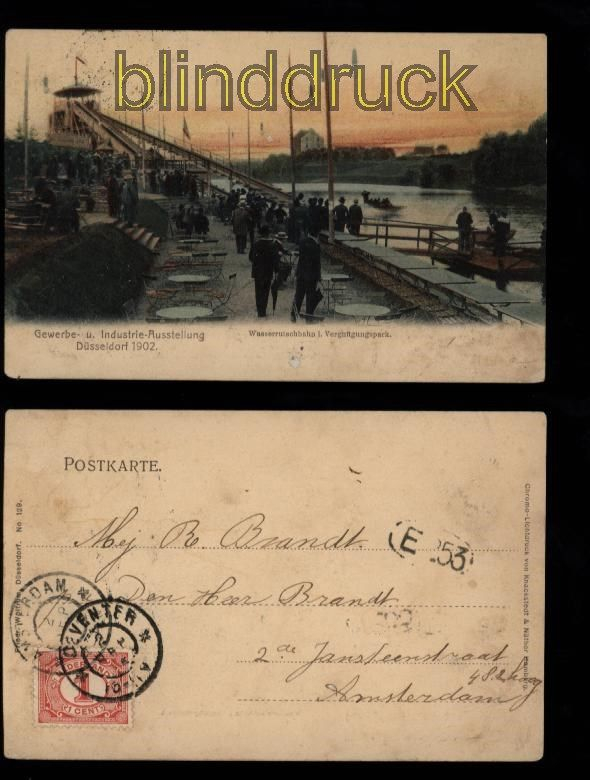 blinddruck
Gewerbe- u. Industrie-Ausstellung
Düsseldorf 1902.
Wasserrutschbahn i. Vergnügungspark.
POSTKARTE.
Mej R. Brandt.
E 53
Den Heer Brandt
2de Jansteenstraat
48 2 hoog
Amsterdam
DEVENTER
NEDERLAND
1
1 CENT
Düsseldorf. No. 129.
Chromo-Lichtdruck von Knackstedt & Näther, Hamburg.